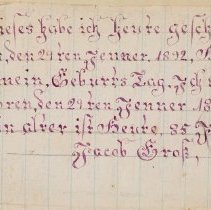 ieses habe ich heute gesch
, den 29ten Jenner. 1892,
mein, Geburts Tag, Ich
oren, den 29ten Jenner 18
in alter ist Heute, 85 J
Jacob Groß,